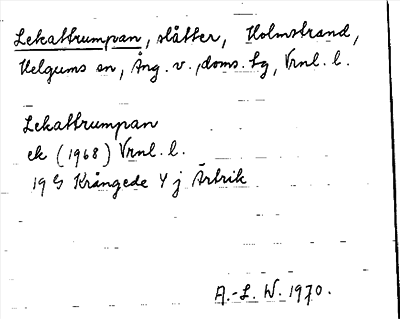 Lekattrumpan, slåtter, Holmstrand,
Helgums sn, Ång. v. doms. tg, Vrnl. l.
Lekattrumpan
ek (1968) Vrnl. l.
19 G Krångede 4 j Ärtrik
A.-L. W. 1970.